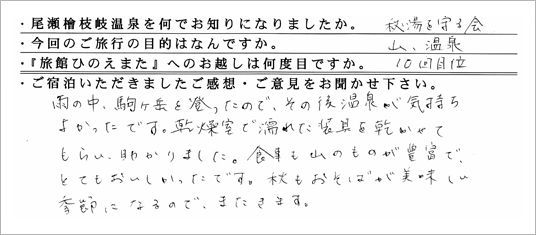 ・尾瀬檜枝岐温泉を何でお知りになりましたか。 秘湯を守る会
・今回のご旅行の目的はなんですか。 山、温泉
・『旅館ひのえまた』へのお越しは何度目ですか。 10回目位
・ご宿泊いただきましたご感想・ご意見をお聞かせ下さい。
雨の中、駒ヶ岳を登ったので、その後温泉が気持ち
よかったです。乾燥室で濡れた装具を乾かせて
もらい、助かりました。食事も山のものが豊富で、
とてもおいしかったです。秋もおそばが美味しい
季節になるので、またきます。